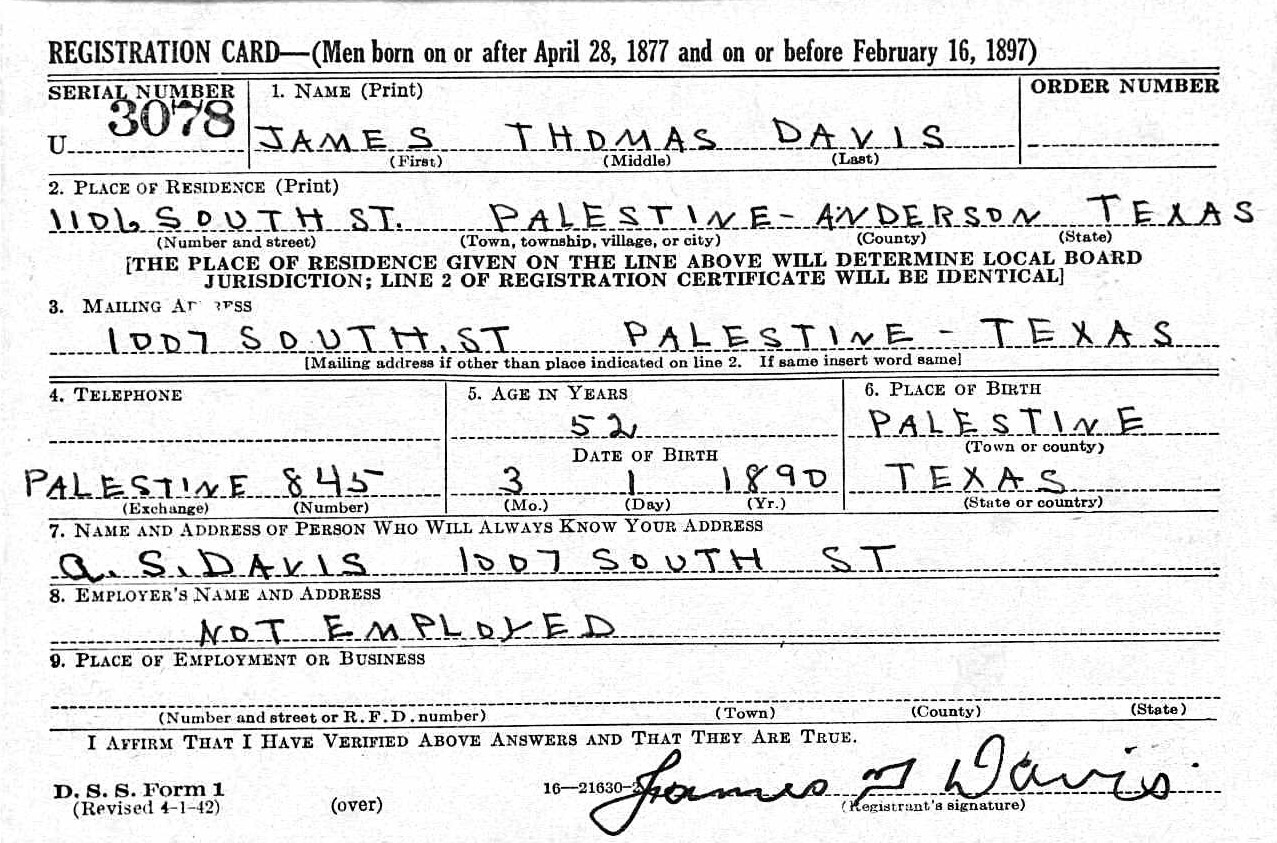 REGISTRATION CARD—(Men born on or after April 28, 1877 and on or before February 16, 1897)
SERIAL NUMBER 1. NAME (Print) ORDER NUMBER
U 3078 JAMES THOMAS DAVIS
(First) (Middle) (Last)
2. PLACE OF RESIDENCE (Print)
1106 SOUTH ST. PALESTINE - ANDERSON TEXAS
(Number and street) (Town, township, village, or city) (County) (State)
[THE PLACE OF RESIDENCE GIVEN ON THE LINE ABOVE WILL DETERMINE LOCAL BOARD
JURISDICTION; LINE 2 OF REGISTRATION CERTIFICATE WILL BE IDENTICAL]
3. MAILING
1007 SOUTH. ST PALESTINE - TEXAS
[Mailing address if other than place indicated on line 2. If same insert word same]
4. TELEPHONE 5. AGE IN YEARS 6. PLACE OF BIRTH
52 PALESTINE
DATE OF BIRTH (Town or county)
PALESTINE 845 3 1 1890 TEXAS
(Exchange) (Number) (Mo.) (Day) (Yr.) (State or country)
7. NAME AND ADDRESS OF PERSON WHO WILL ALWAYS KNOW YOUR ADDRESS
A. S. DAVIS 1007 SOUTH ST
8. EMPLOYER'S NAME AND ADDRESS
NOT EMPLOYED
9. PLACE OF EMPLOYMENT OR BUSINESS
(Number and street or R. F. D. number) (Town) (County) (State)
I AFFIRM THAT I HAVE VERIFIED ABOVE ANSWERS AND THAT THEY ARE TRUE.
D. S. S. Form 1 16—21630-2 James T Davis
(Revised 4-1-42) (over) (Registrant's signature)